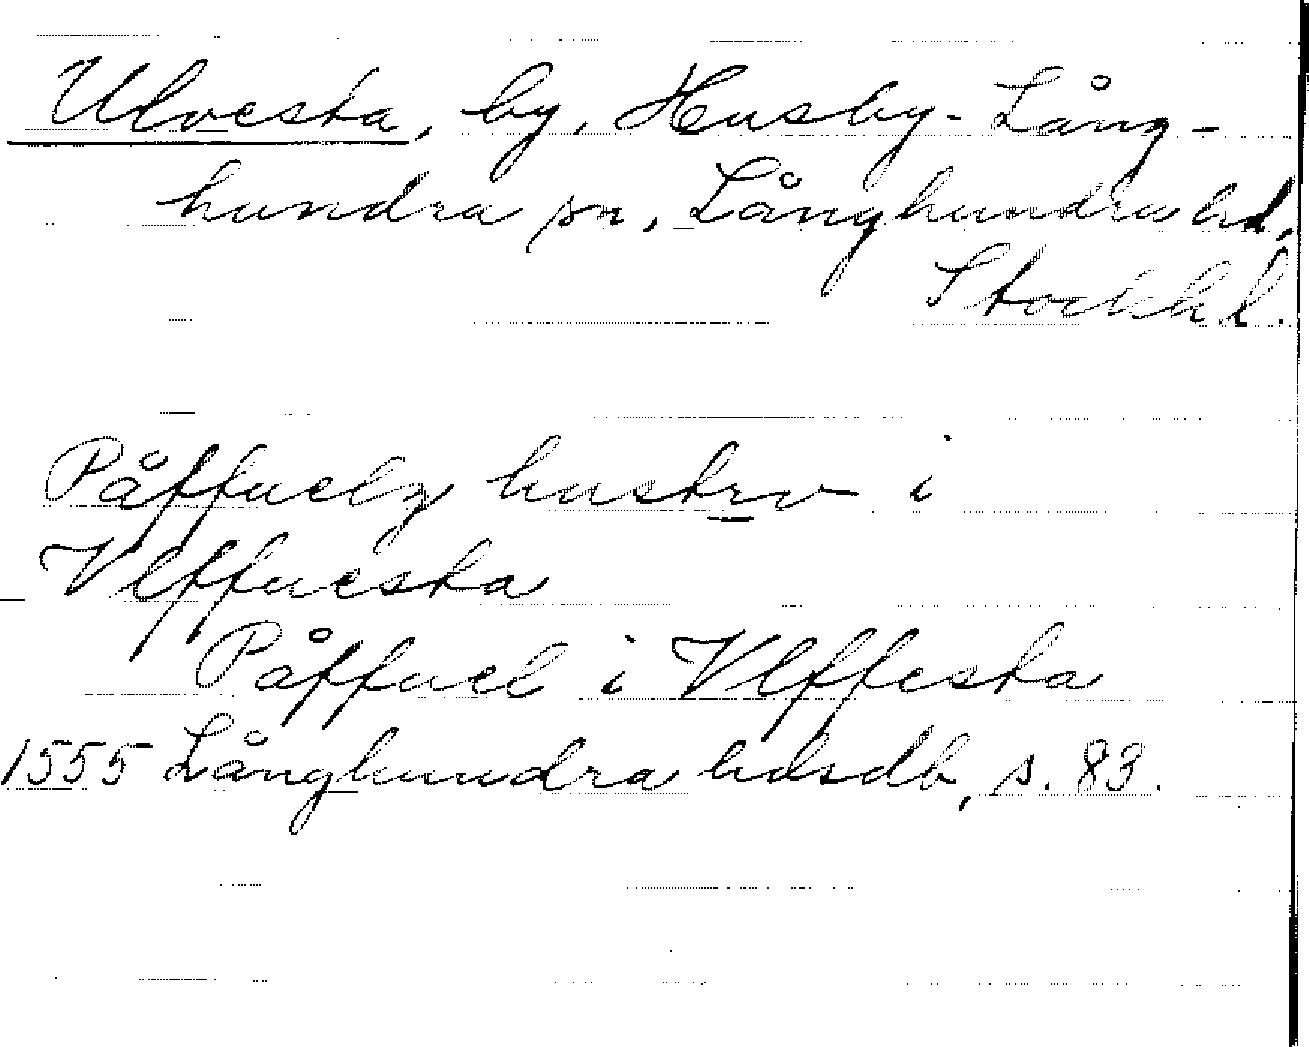 Ulvesta, by, Husby-Lång-
hundra sn, Långhundra hd,
Stockh. l.
Påffuelz hustrv i
Vlffuesta
Påffuel i Vlffesta
1555 Långhundra hdsdb, s. 83.